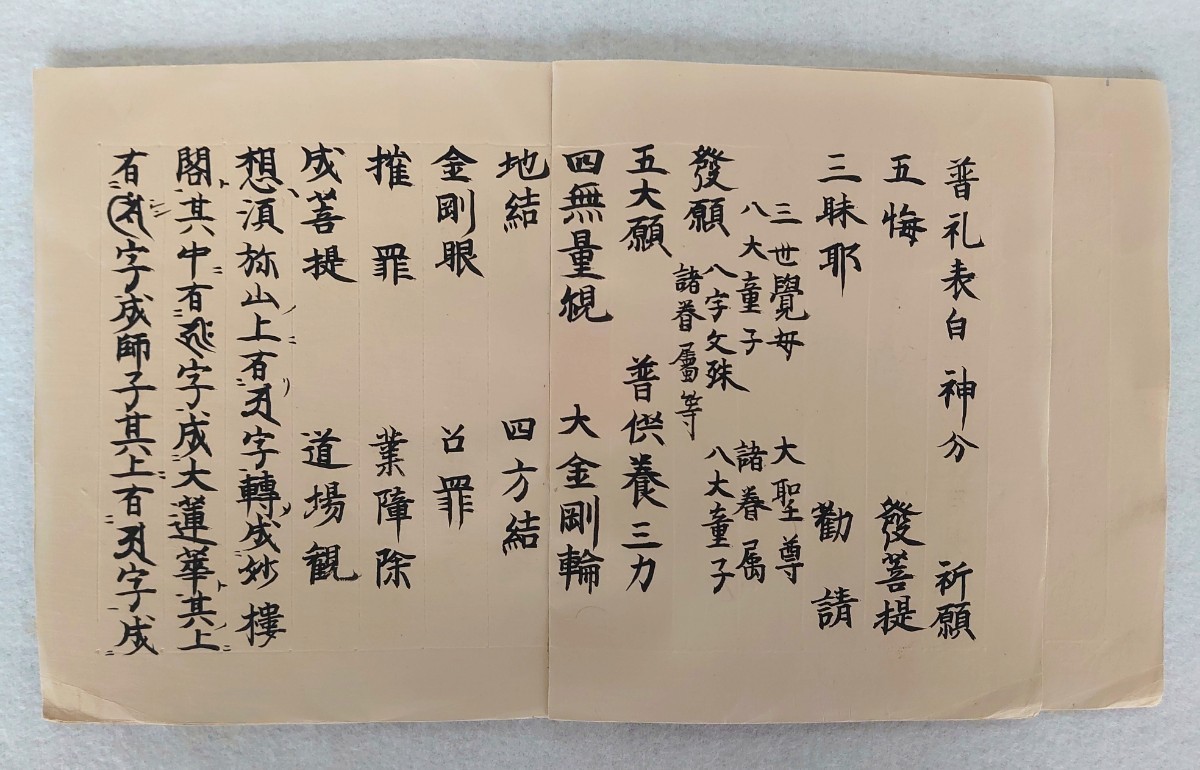 普礼表白 神分 祈願
五悔 發菩提
三昩耶 勸請
三世覺母 大聖尊
八大童子 諸眷属
發願 八字文殊 八大童子
諸眷屬等
五大願 普供養三力
四無量観 大金剛輪
地結 四方結
金剛眼 召罪
摧罪 業障除
成菩提 道場観
想湏弥山上有字轉成妙樓
閣其中有字成大蓮華其上
有字成師子其上有字成